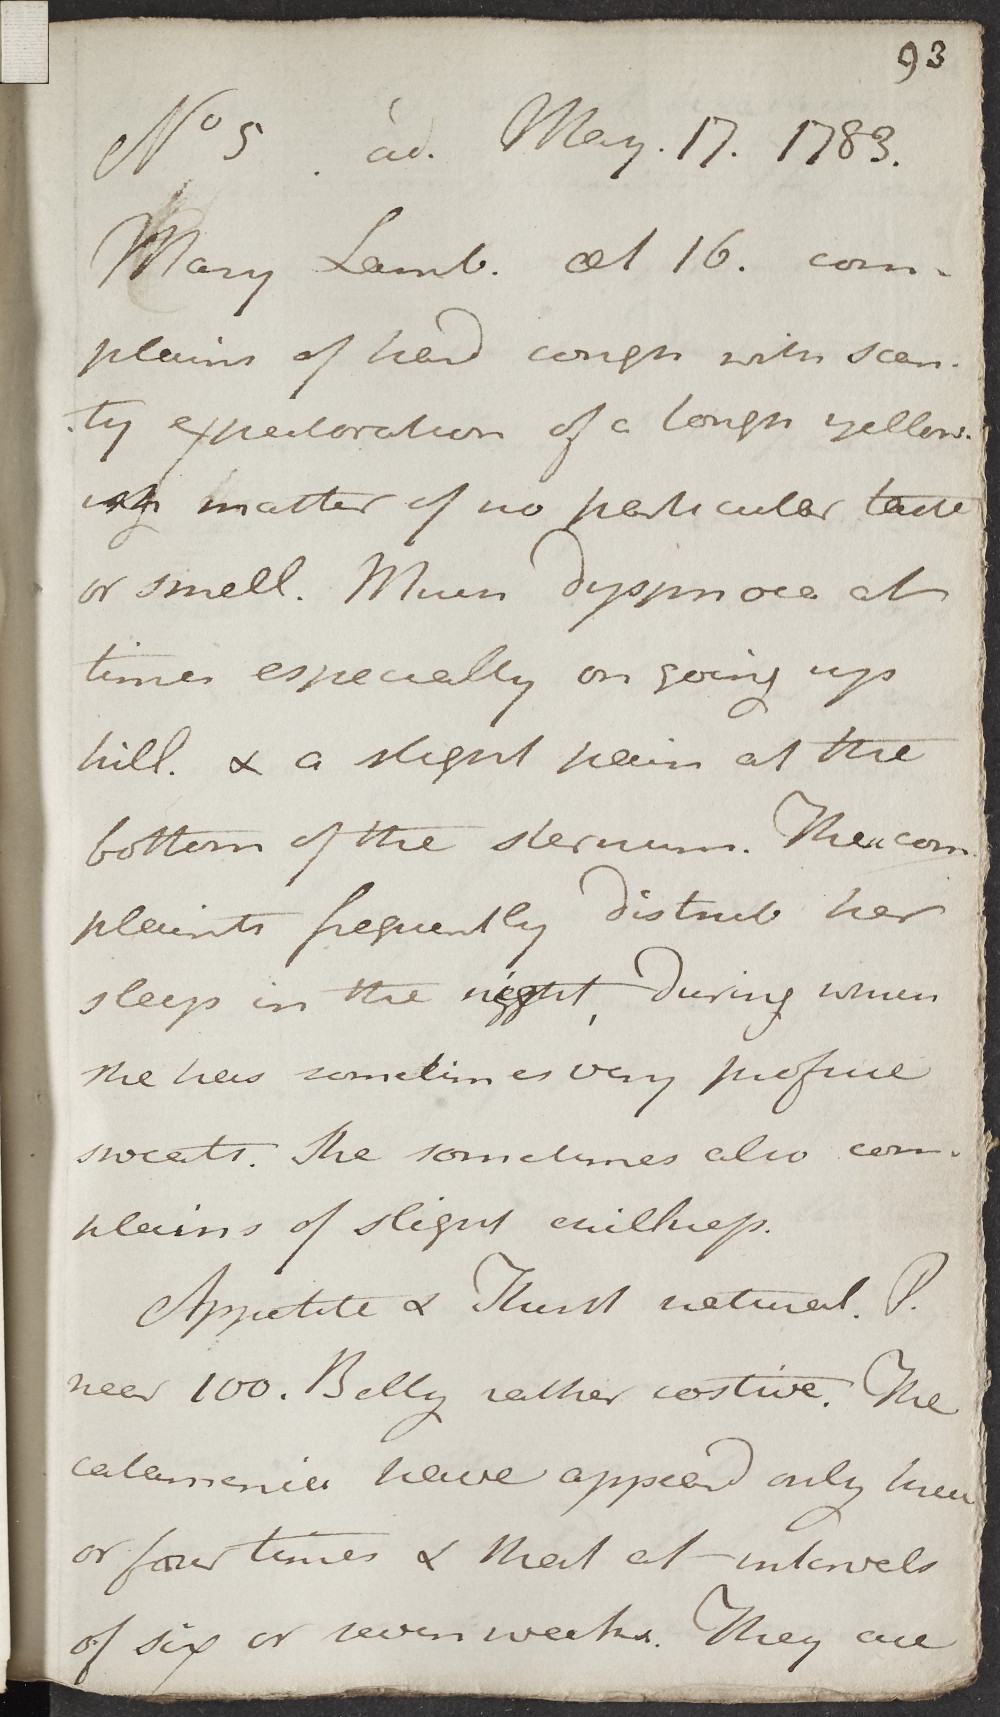 93
No 5 ad. May. 17. 1783.
Mary Lamb. æt 16. com-
plains of hard cough with scan-
ty expectoration of a tough yellow-
ish matter of no particular taste
or smell. Much dyspnoea at
times especially on going up
hill. & a slight pain at the
bottom of the sternum. These com
plaints frequently disturb her
sleep in the night, during which
she has sometimes very profuse
sweats. She sometimes also com-
plains of slight chilliness.
Appetite & Thirst natural. P.
near 100. Belly rather costive. The
catamenia have appeard only three
or four times & that at intervals
of six or seven weeks. They are